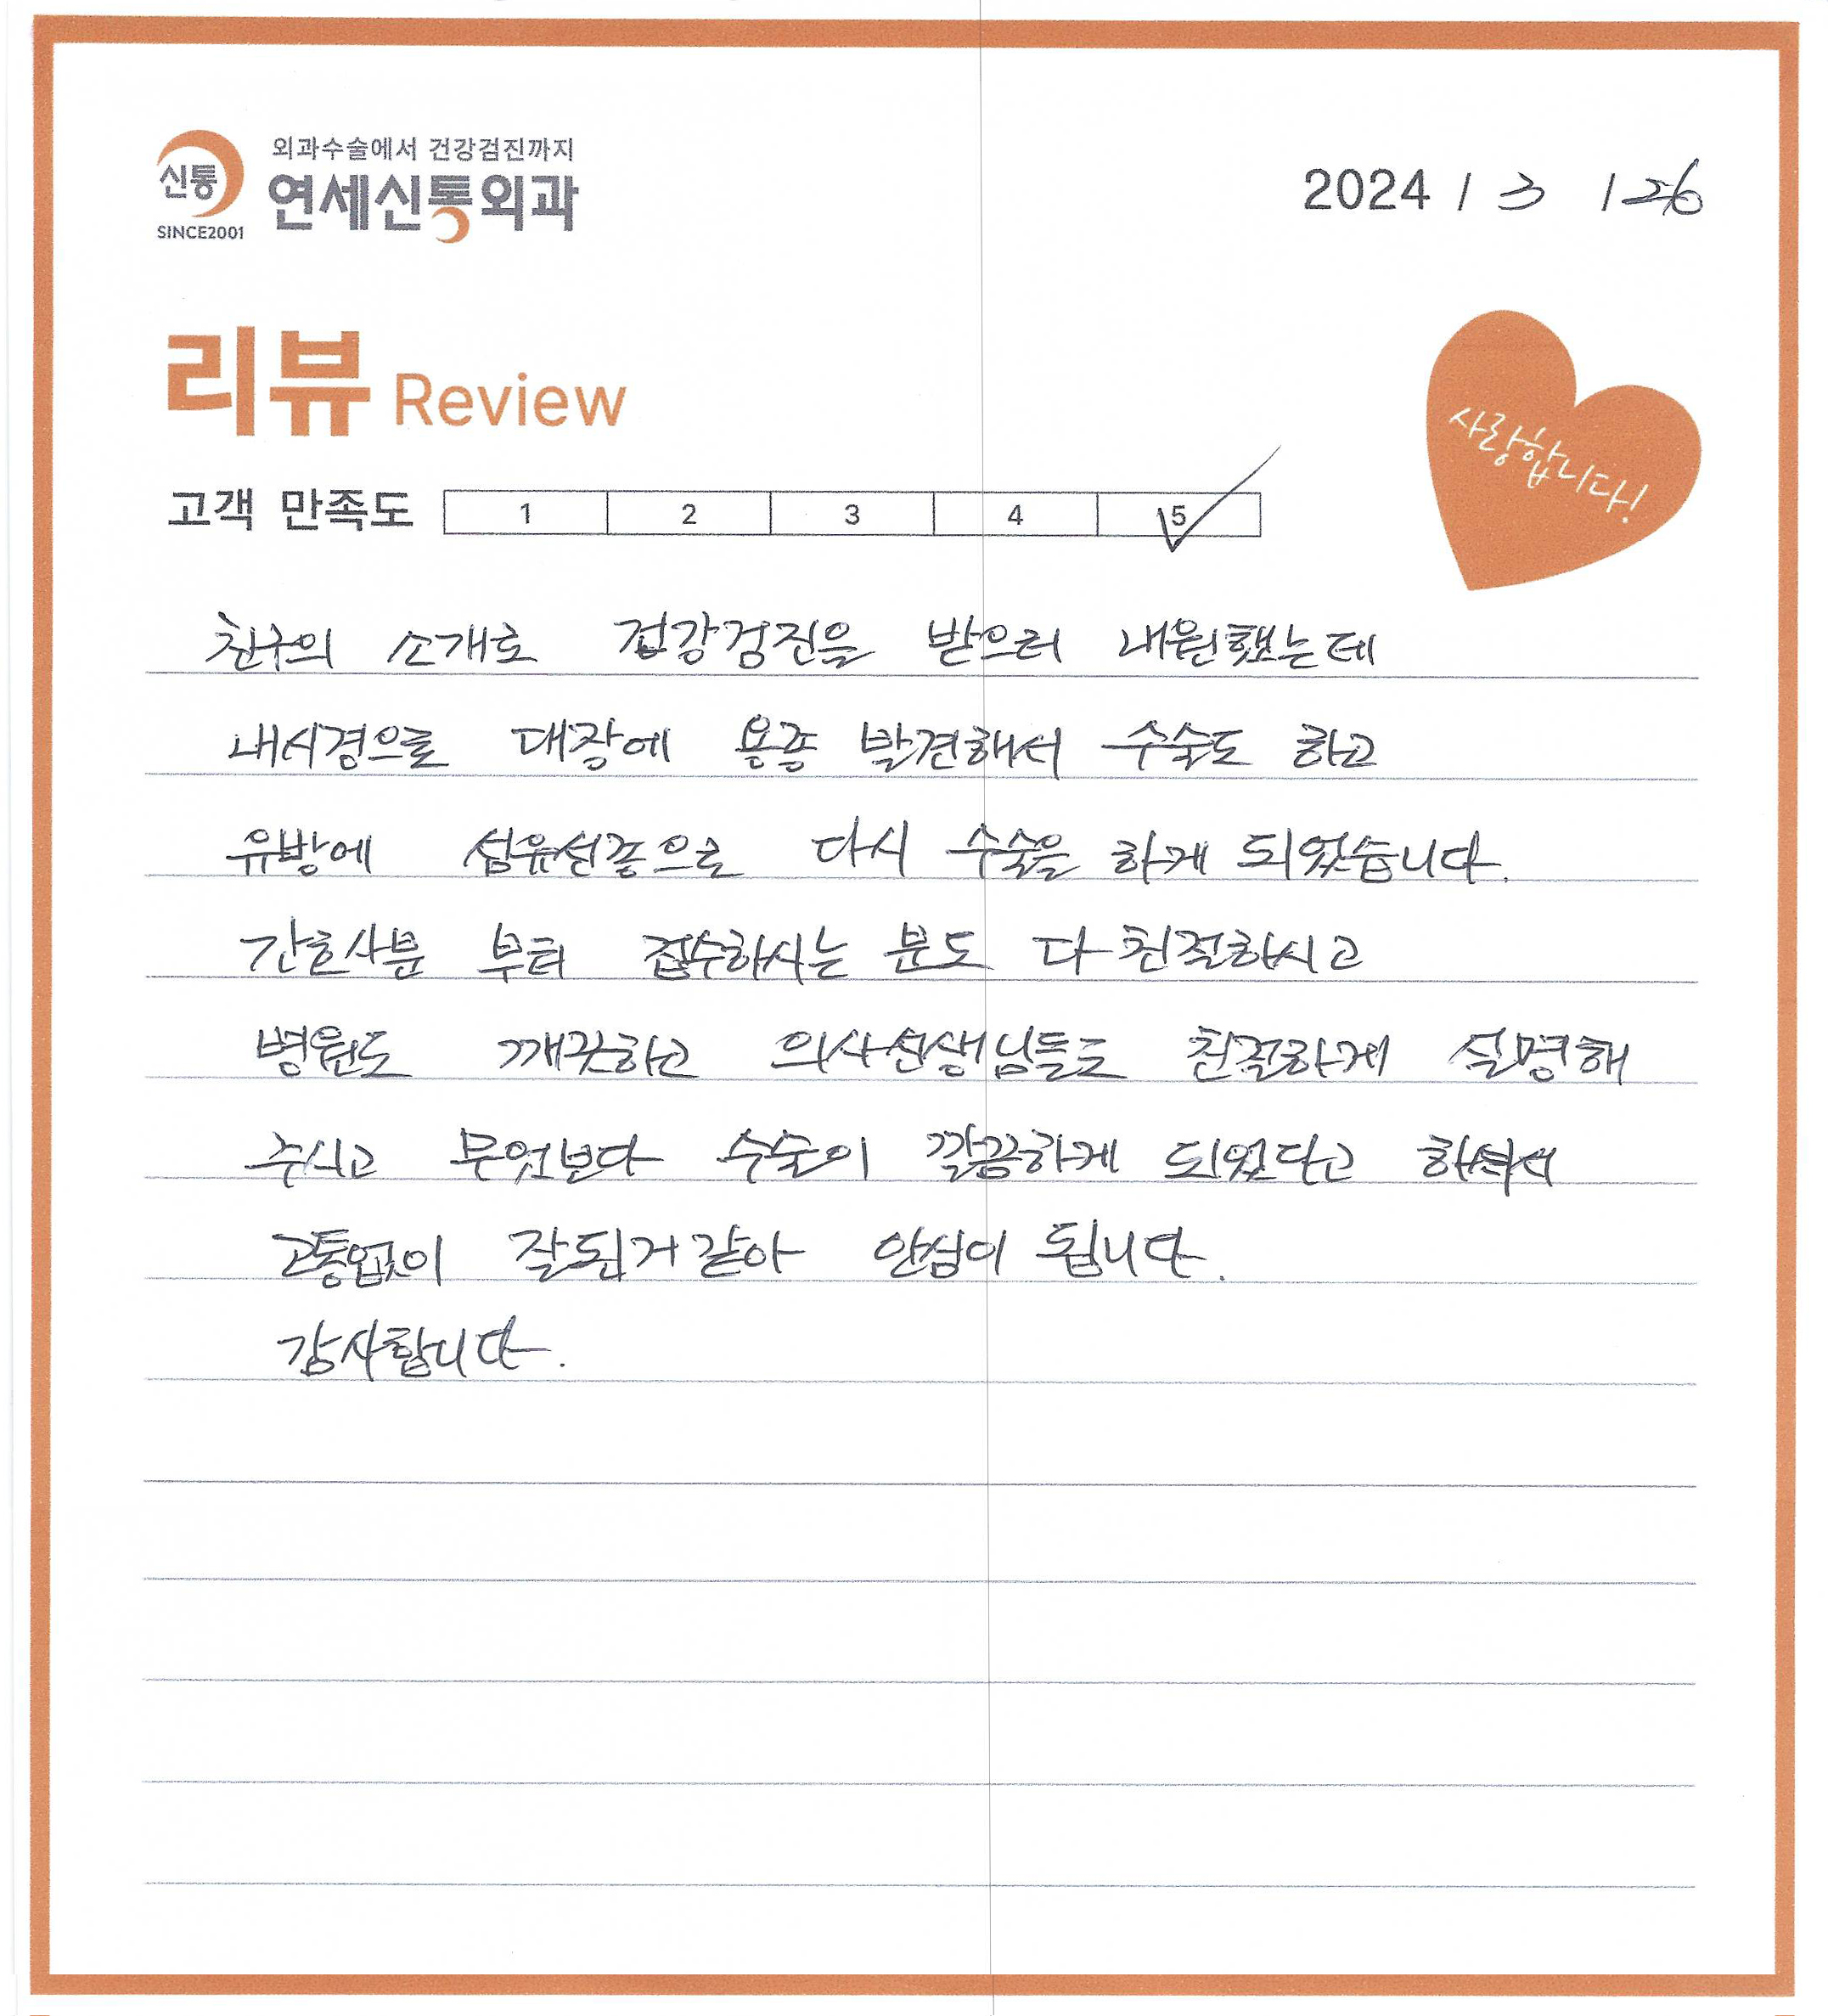 외과수술에서 건강검진까지
신통
연세신통외과
SINCE2001
2024 / 3 / 26
리뷰 Review
사랑합니다!
고객 만족도 1 2 3 4 5
친구의 소개로 겁강검진을 받으러 내원했는데
내시경으로 대장에 용종 발견해서 수술도 하고
유방에 섬유선종으로 다시 수술을 하게 되었습니다.
간호사분 부터 접수하시는 분도 다 친절하시고
병원도 깨끗하고 의사선생님들도 친절하게 설명해
주시고 무엇보다 수술이 깔끔하게 되었다고 하셔서
고통없이 잘된거 같아 안심이 됩니다.
감사합니다.